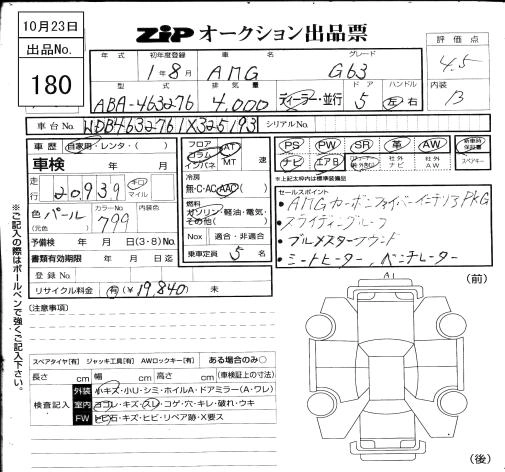 10月23日
出品No.
180
ZIP オークション出品票
評価点
4.5
内装
B
年式 初年度登録 車名 グレード
1年8月 AMG G63
型式 排気量 ドア ハンドル
ABA-463276 4,000 ディーラー・並行 5 左 右
車台No. WDB4632761X325193 シリアルNo.
歴 自家用・レンタ・( )
車検 年 月
走行 20,939 キロ マイル
色 パール (元色) カラーNo 799 内装色
予備検 年 月 日(3・8)No.
書類有効期限 年 月 日迄
登録No.
リサイクル料金 有(¥19,840) 未
フロア コラム インパネ AT MT 速
冷房
無・C・AC・AAC
燃料
ガソリン・軽油・電気・その他( )
Nox 適合・非適合
乗車定員 5 名
PS PW SR 革 AW 新車時保証書
ナビ エアB 社外ナビ 社外AW スペアキー
※上記太枠内は標準装備品
セールスポイント
・AMGカーボンファイバーインテリアPKG
・スライディングルーフ
・ブルメスターサウンド
・シートヒーター、ベンチレーター
(注意事項)
スペアタイヤ[有] ジャッキ工具[有] AWロックキー[有] ある場合のみ〇
長さ cm 幅 cm 高さ cm (車検証上の寸法)
検査記入
外装 小キズ・小U・シミ・ホイルA・ドアミラー(A・ワレ)
室内 ヨゴレ・キズ・スレ・コゲ・穴・キレ・破れ・ウキ
FW トビ石・キズ・ヒビ・リペア跡・X要ス
A1
(前)
(後)
※ご記入の際はボールペンで強くご記入下さい。